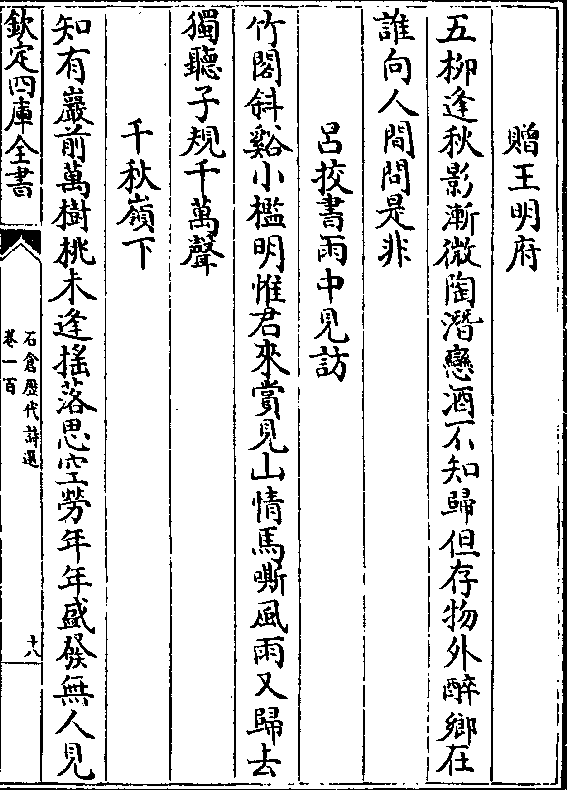 贈王明府
五柳逢秋影漸微陶潛戀酒不知歸但存物外醉鄉在
誰向人間問是非
吕挍書雨中見訪
竹閣斜谿小檻明惟君來賞見山情馬嘶風雨又歸去
獨聽子規千萬聲
千秋嶺下
知有巖前萬樹桃未逢搖落思空勞年年盛發無人見
欽定四庫全書
石倉歷代詩選
卷一百
十八